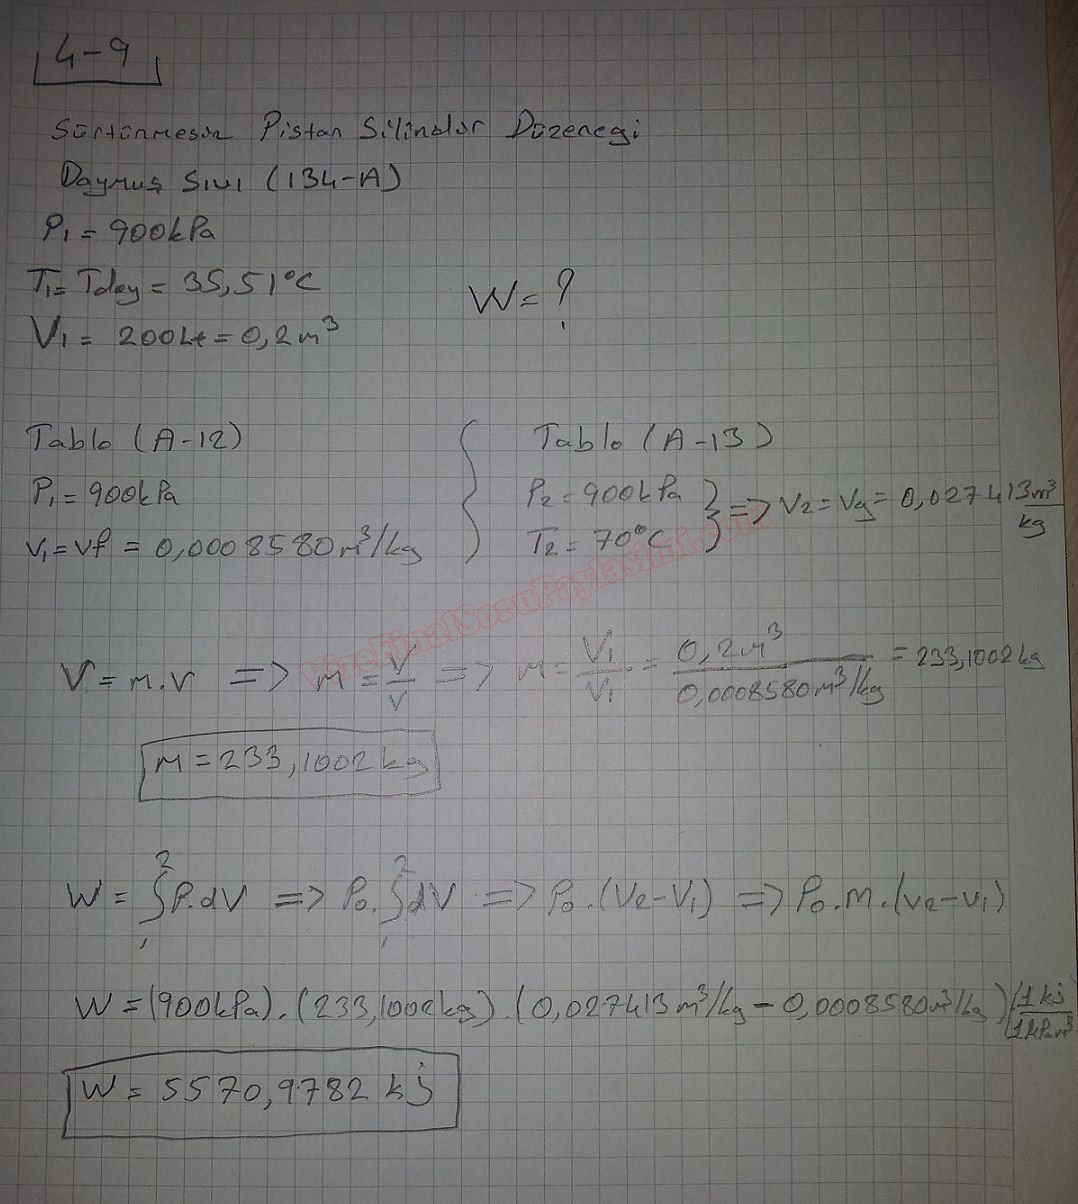 4-9
Sürtünmesiz Piston Silindir Düzenegi
Doymuş Sıvı (134-A)
P₁ = 900kPa
T₁ = Tdoy = 35,51°C
W = ?
V₁ = 200Lt = 0,2m³
Tablo (A-12)
P₁ = 900kPa
v₁ = vf = 0,0008580 m³/kg
Tablo (A-13)
P₂ = 900kPa
T₂ = 70°C
} => v₂ = vg = 0,027413 m³/kg
MachinalSoruPaylasimi.com
V = m.v => m = V/v => m = V₁/v₁ = 0,2m³/0,0008580m³/kg = 233,1002kg
m = 233,1002kg
W = ∫₁² P.dV => P₀.∫₁² dV => P₀.(V₂-V₁) => P₀.m.(v₂-v₁)
W = (900kPa).(233,1002kg).(0,027413m³/kg - 0,0008580m³/kg)(1kj/1kPa.m³)
W = 5570,9782 kj